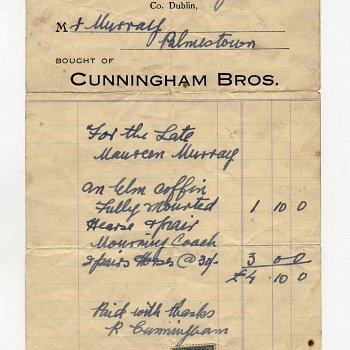 Co. Dublin,
Mr Murray
Palmestown
BOUGHT OF
CUNNINGHAM BROS.
For the Late
Maureen Murray
an Elm coffin
Fully Mounted 1 10 0
Hearse & pair
Mourning Coach
2 pairs Horses @ 30/- 3 0 0
£4 10 0
Paid with thanks
R Cunningham